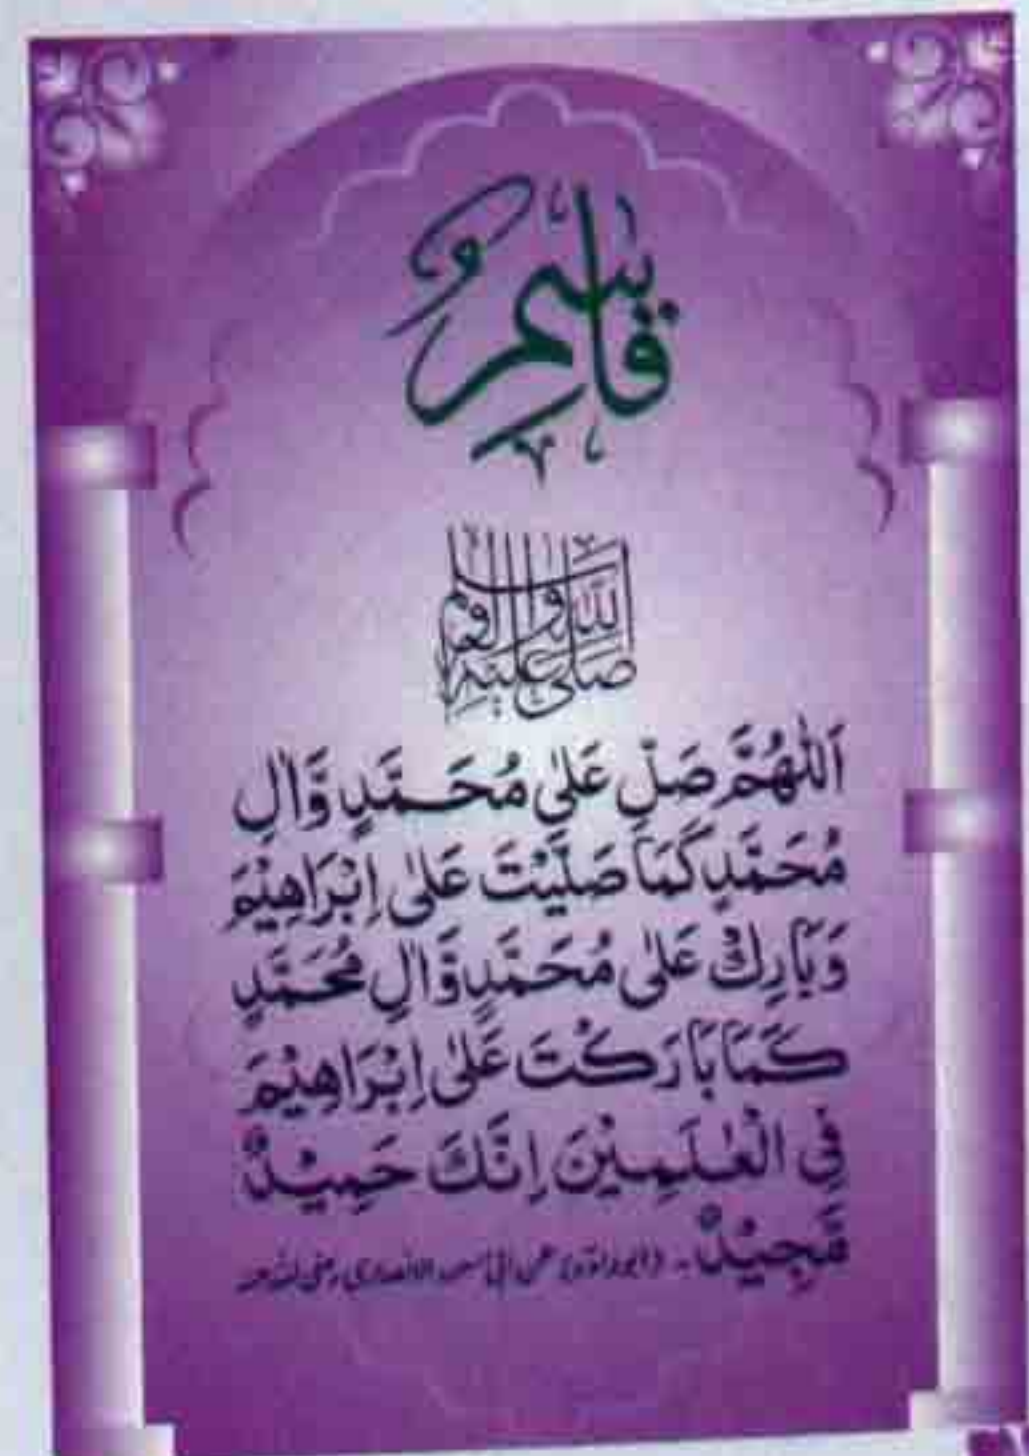 قَاسِمٌ
صَلَّى اللهُ عَلَيْهِ وَاٰلِهٖ وَسَلَّم
اَللّٰهُمَّ صَلِّ عَلٰى مُحَمَّدٍ وَّاٰلِ
مُحَمَّدٍ كَمَا صَلَّيْتَ عَلٰى اِبْرَاهِيْمَ
وَبَارِكْ عَلٰى مُحَمَّدٍ وَّاٰلِ مُحَمَّدٍ
كَمَا بَارَكْتَ عَلٰى اِبْرَاهِيْمَ
فِي الْعٰلَمِيْنَ اِنَّكَ حَمِيْدٌ
مَّجِيْدٌ۔ (ابوداؤد) عن ابی مسعود الانصاری رضی اللہ عنہ